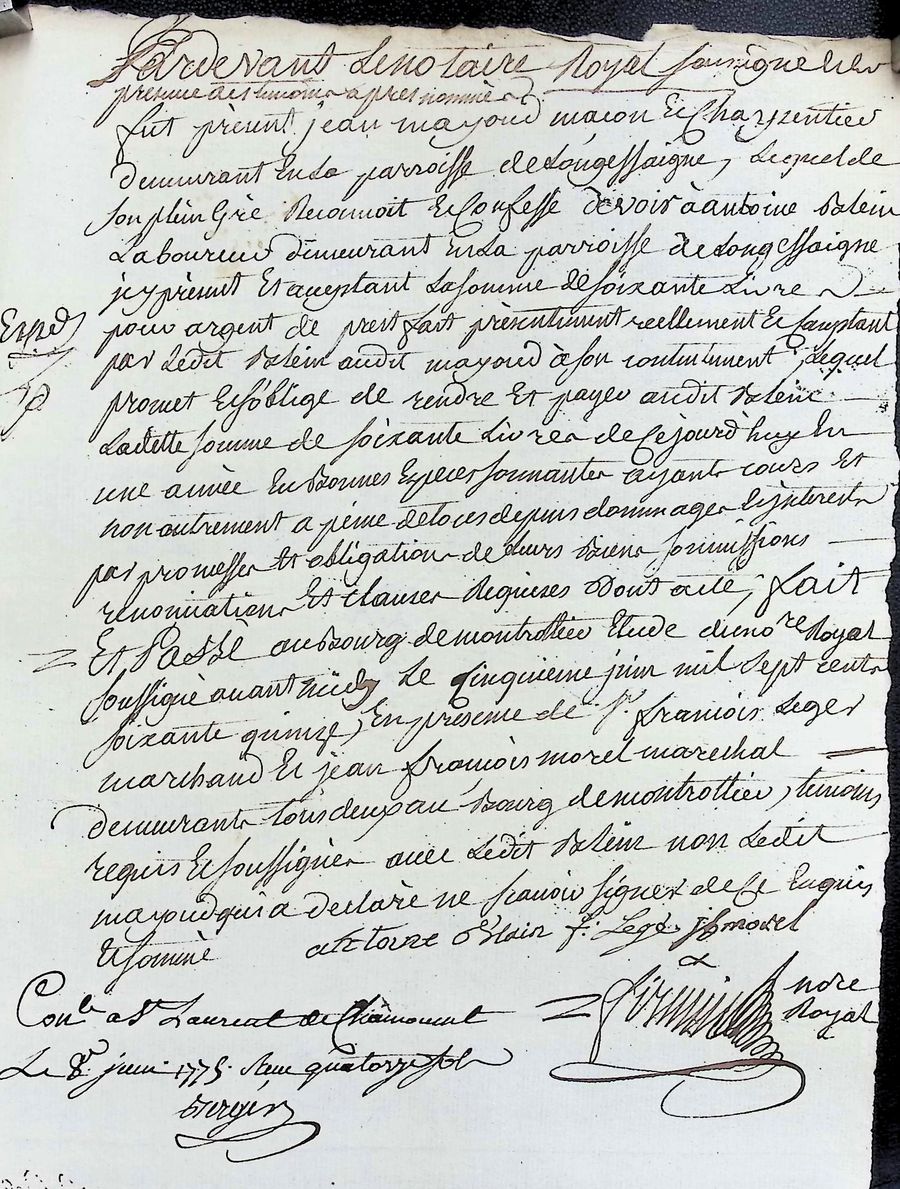 Pardevant Le notaire Royal soussigné Et En
presence des temoins apres nommés
fut présent jean mayoud maçon Et Charpentier
demeurant En La parroisse de Longessaigne, Lequel de
son plein Gré Reconnoit Et Confesse devoir à antoine Blein
Laboureur demeurant En La parroisse de Longessaigne
jcy présent Et acceptant La somme de soixante Livres
Exped
pour argent de prest fait présentement reellement Et Comptant
par Ledit Blein audit mayoud à son contentement, Lequel
promet Et s'oblige de rendre Et payer audit Blein
Ladette somme de soixante Livres de Cejourd'huy En
une année En Bonnes Especes sonnantes ayants cours Et
non autrement a peine de tous depens dommages Et jnterests
par promesses Et obligations de Leurs Biens soumissions
renonciations Et clauses Requises Dont acte, fait
Et Passé au Bourg de montrottier Etude du no.re Royal
soussigné avant midy Le Cinquieme juin mil sept cents
soixante quinze, En presence de S.r francois Leger
marchand Et jean francois morel marechal
demeurants tous deux au Bourg de montrottier, temoins
requis Et soussignés avec Ledit Blein non Ledit
mayoud qui a déclaré ne scavoir signer de Ce Enquis
Et sommé antoine Blein f. Leger jfmorel
Con.le a S.t Laurent de Chamousset
nore
Royal
Le 8.e juin 1775. Recu quatorze sols